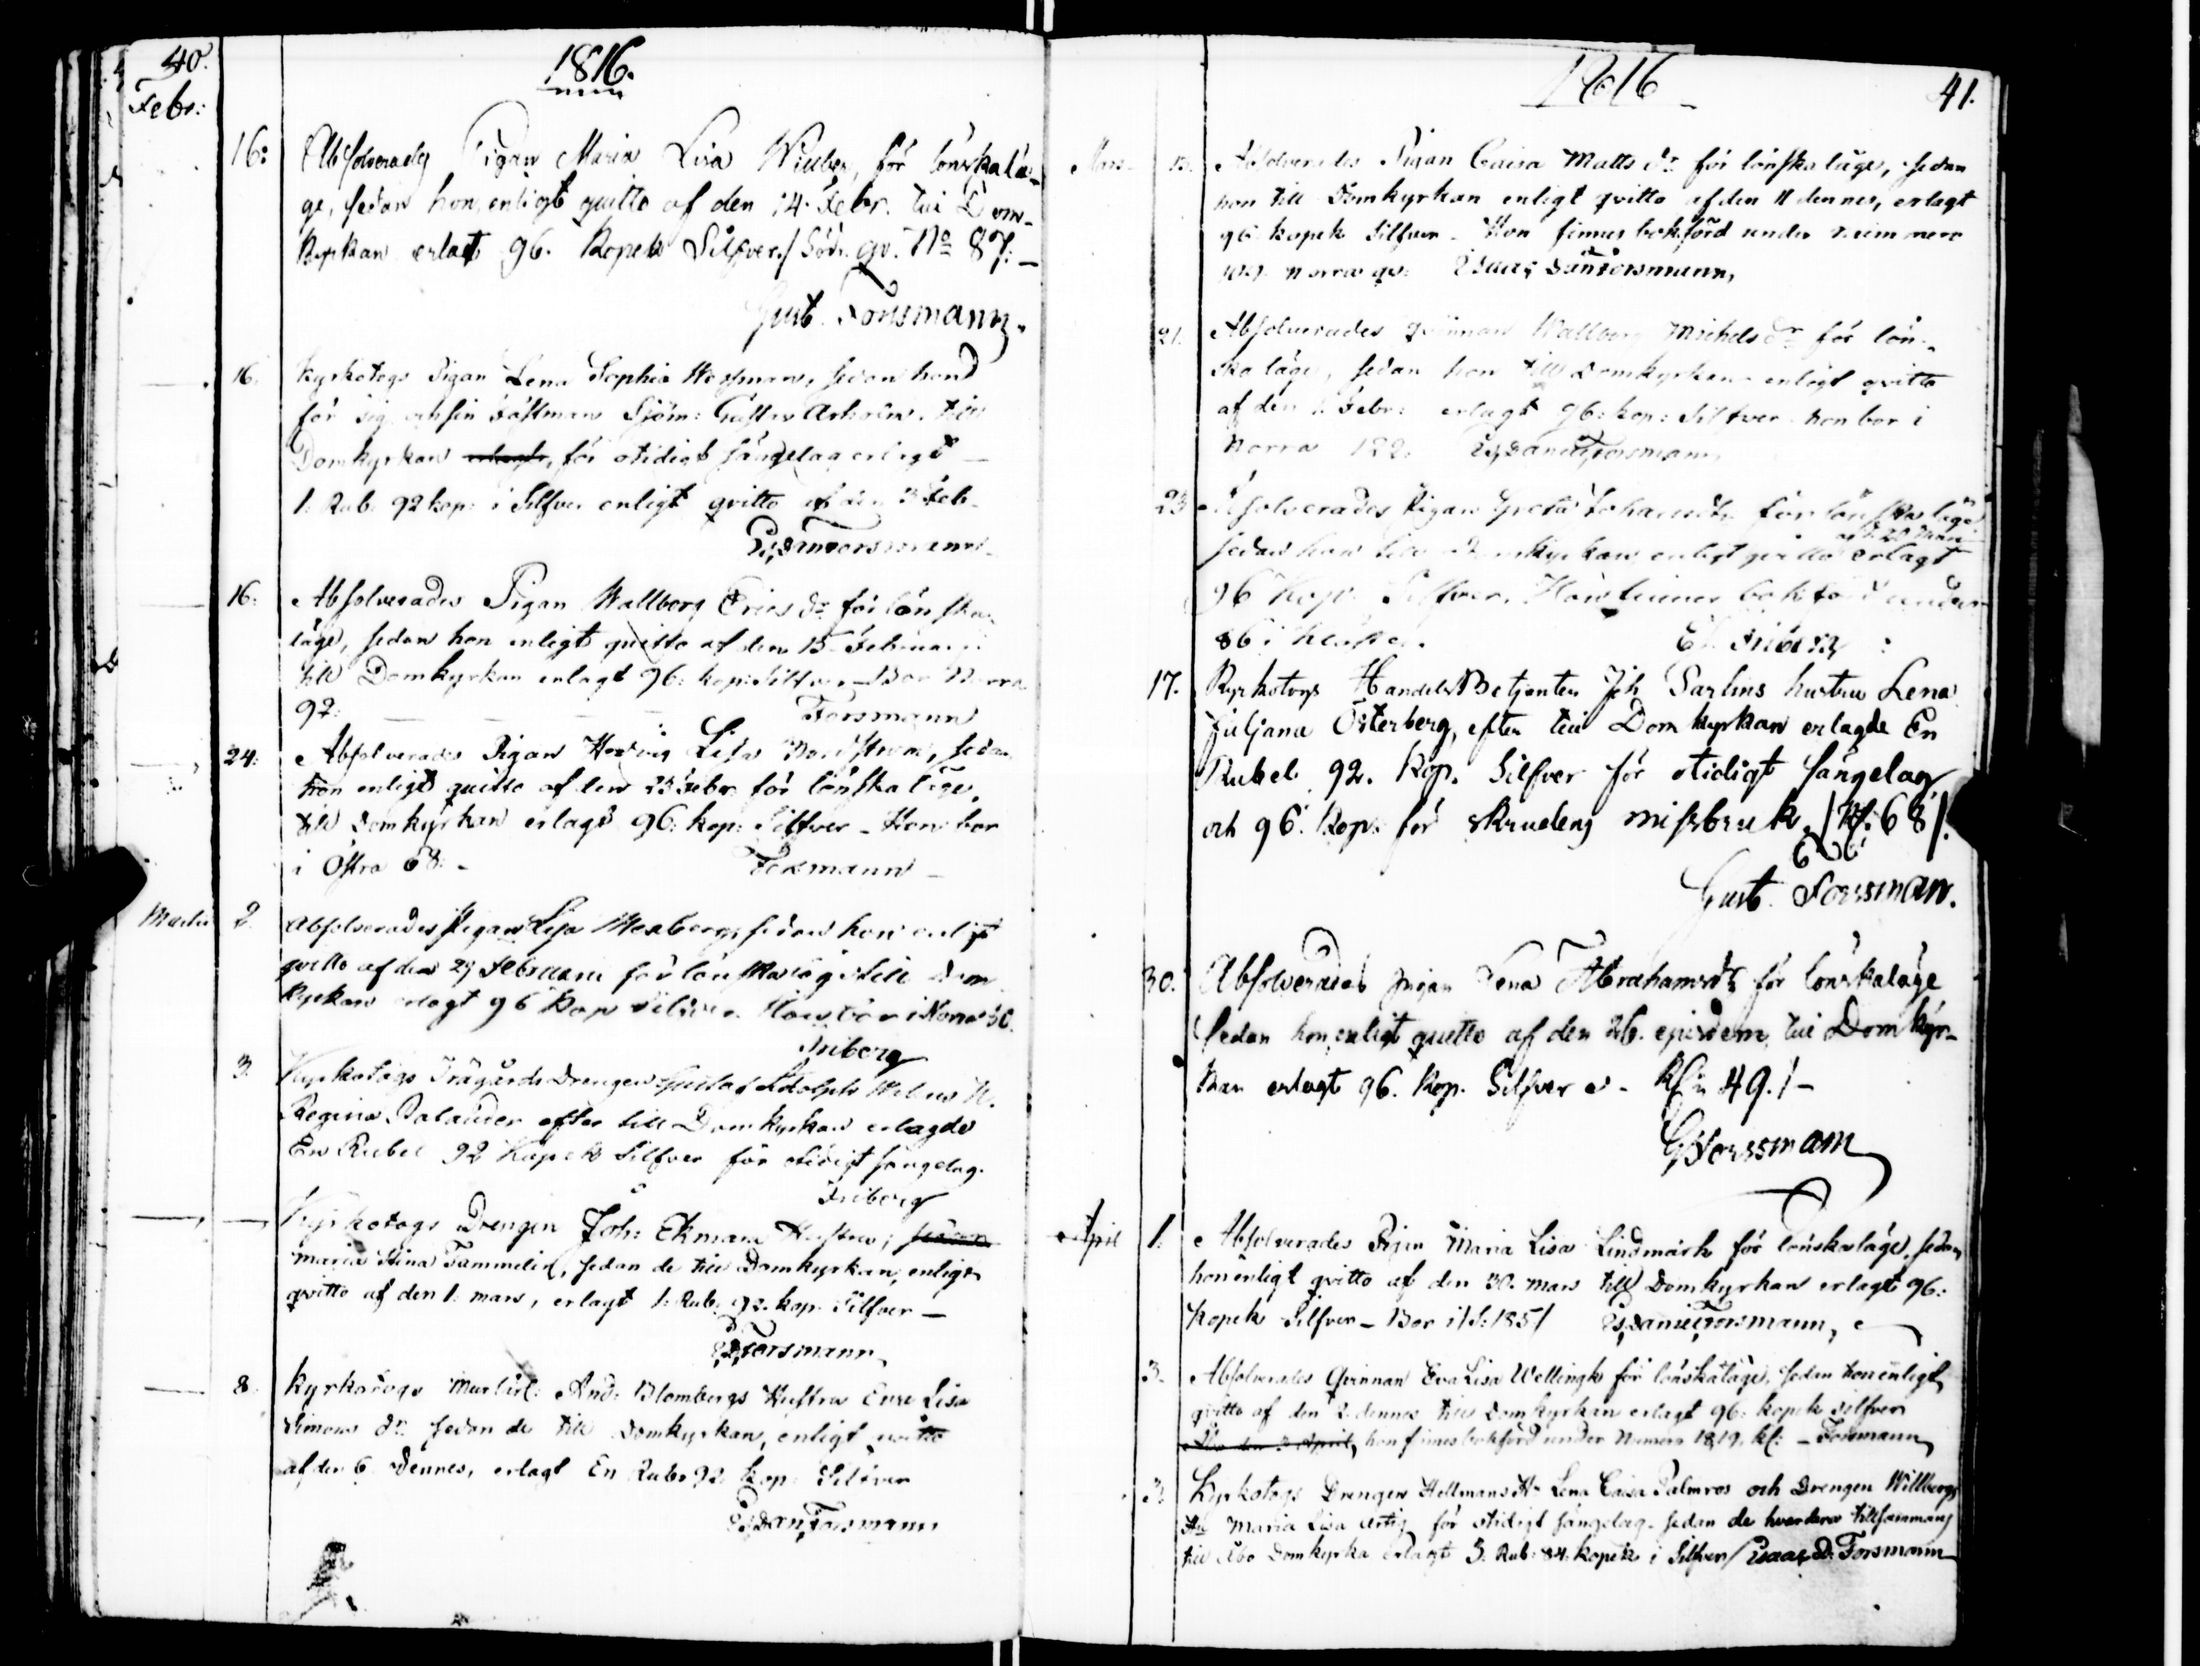 40.
1816.
Febr:
16: Absolverades Pigan Maria Lisa Widberg, för lönskalä-
ge, sedan hon, enligt quitto af den 14. Febr. till Dom-
kyrkan erlagt 96. Kopek Silfver / Södr. qv. No 87: -
Gust. Forssmann.
16. Kyrkotogs Pigan Lena Sophia Wessman, sedan hon
för sig och sin Fästman Sjöm: Gustav Arholm, till
Domkyrkan erlagt, för otidigt sängelag erlagt
1. Rub. 92 kop: i Silfver enligt qvitto af den 3 Feb.
Is, Dan Forsmann
16. Absolverades Pigan Wallborg Erics dr för lönska
läge, sedan hon enligt quitto af den 15 Februarii
till Domkyrkan erlagt 96: kop: Silfver - Bor Norra
92: Forsmann
24: Absolverades Pigan Hedvig Lisa Nordström, sedan
hon enligt quitto af den 23 Febr. för lönska läge,
till Domkyrkan erlagt 96: kop: Silfver - Hon bor
i Östra 68: - Forsmann
Martii 2 Absolverades Pigan Lisa Maxberg, sedan hon enligt
qvitto af den 29 Februarii för lönskaläge till Dom
kyrkan erlagt 96 Kop Silfver. Hon bor i Norra 50.
Friberg
3. Kyrkotogs Trägårds Drengen Gustaf Adolph H.
Regina Palander efter till Domkyrkan erlagde
En Rubel 92 Kopek Silfver för otidigt sängelag.
Friberg
Kyrkotogs Drengen Joh: Ekmans Hustru,
Maria Stina Tammelin, sedan de till Domkyrkan, enligt
qvitto af den 1. mars, erlagt 1. Rub. 92. kop. Silfver -
I, D, Forsmann
8. Kyrkotogs And: Blombergs Hustru Eva Lisa
Simons dr sedan de till Domkyrkan, enligt qvitto
af den 6 dennes, erlagt En Rub. 92. kop. Silfver
Is, Dan, Forsmann
1816
41.
Mars 13. Absolverades Pigan Caisa Matts dr för lönska läge, sedan
hon till Domkyrkan enligt qvitto af den 11 dennes, erlagt
96 kopek Silfver - Hon finnes bokförd under nummero
Norra qv: Isaac Dan Forsmann,
21. Absolverades Qvinnan Wallborg Michels dr för lön-
ska läge, sedan hon till Domkyrkan enligt qvitto
af den 1. Febr: erlagt 96: kop: Silfver hon bor i
Norra 122. Is, Daniel, Forsmann
23 Absolverades Pigan Greta Johansdr för lönska läge
sedan hon till Domkyrkan enligt qvitto af d. 20 Mars erlagt
96 Kop. Silfver. Hon finnes bokförd under
86 i Klöstr. Friberg
17. Kyrkotogs Handels Betjenten Joh Sarlins hustru Lena
Juljana Österberg, efter till Domkyrkan erlagde En
Rubel 92. Kop. Silfver för otidigt sängelag
och 96. Kop. för skrudens missbruk. / Kl. 68/.
Gust. Forssman.
30. Absolverades pigan Lena Abrahamsdr för lönskaläge
sedan hon, enligt quitto af den 26. ejusdem, till Domkyr-
kan erlagt 96. Kop. Silfver - Kl: 49. / -
G, Forssmann
April 1. Absolverades Pigan Maria Lisa Lindmark för lönskaläge, sedan
hon enligt qvitto af den 30. mars till Domkyrkan erlagt 96:
kopek Silfver - Bor i /S: 185/ Is, Daniel, Forsmann,
3. Absolverades Qvinnan Eva Lisa Wellingk för lönskaläge, sedan hon enligt
qvitto af den 2 dennes till Domkyrkan erlagt 96: kopek Silfver
Åbo den 3 April, hon finnes bokförd under Numero 18, 19. kl: - Forsmann
3. Kyrkotogs Drengen Hellmans Hu Lena Caisa Palmros och Drengen Willbergs
Hu Maria Lisa Artig för otidigt sängelag. sedan de hvardera tillsammans
till Åbo Domkyrka erlagt 3. Rub. 84. kopek i Silfver / Isaac D. Forsmann